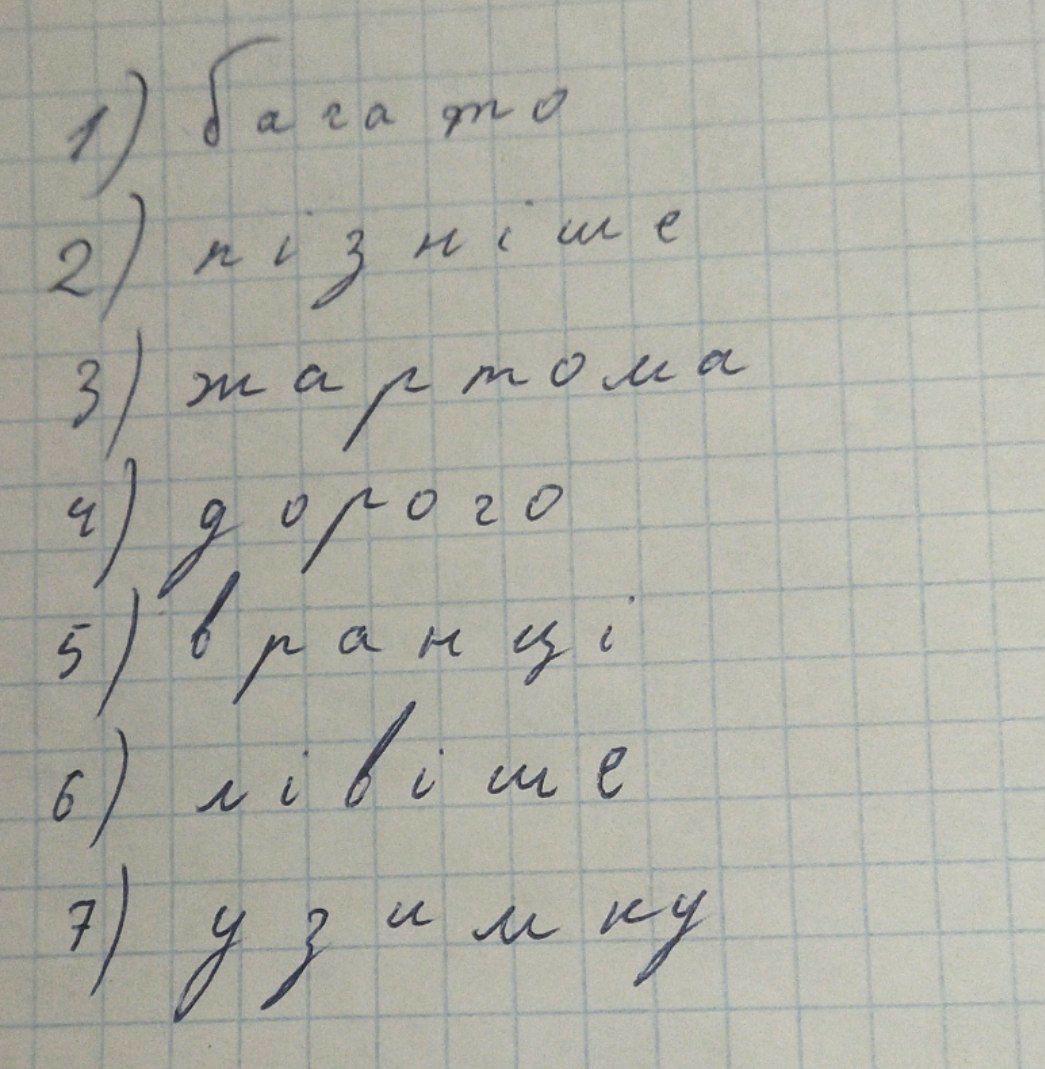 1) багато
2) пізніше
3) жартома
4) дорого
5) вранці
6) лівіше
7) узимку